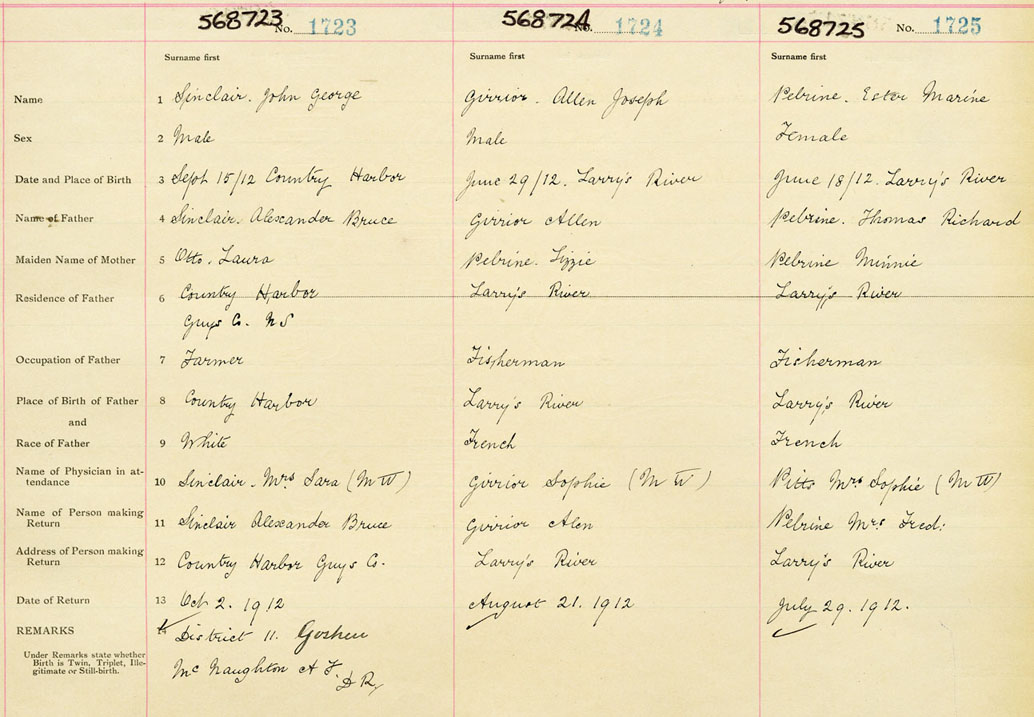 568723 No. 1723 568724 No. 1724 568725 No. 1725
Surname first Surname first Surname first
Name 1 Sinclair. John George Girrior. Allen Joseph Pelrine. Ester Marine
Sex 2 Male Male Female
Date and Place of Birth 3 Sept 15/12 Country Harbor June 29/12. Larry's River June 18/12. Larry's River
Name of Father 4 Sinclair. Alexander Bruce Girrior Allen Pelrine. Thomas Richard
Maiden Name of Mother 5 Otto. Laura Pelrine. Lizzie Pelrine Minnie
Residence of Father 6 Country Harbor Larry's River Larry's River
Guys Co. N S
Occupation of Father 7 Farmer Fisherman Fisherman
Place of Birth of Father 8 Country Harbor Larry's River Larry's River
and
Race of Father 9 White French French
Name of Physician in at-
tendance 10 Sinclair. Mrs Sara (M W) Girrior Sophie (M W) Pitts Mrs Sophie (M W)
Name of Person making
Return 11 Sinclair Alexander Bruce Girrior Alen Pelrine Mrs Fred.
Address of Person making
Return 12 Country Harbor Guys Co. Larry's River Larry's River
Date of Return 13 Oct 2. 1912 August 21. 1912 July 29. 1912.
REMARKS 14 District 11. Goshen
Under Remarks state whether
Birth is Twin, Triplet, Ille-
gitimate or Still-birth.
McNaughton A F. D R,